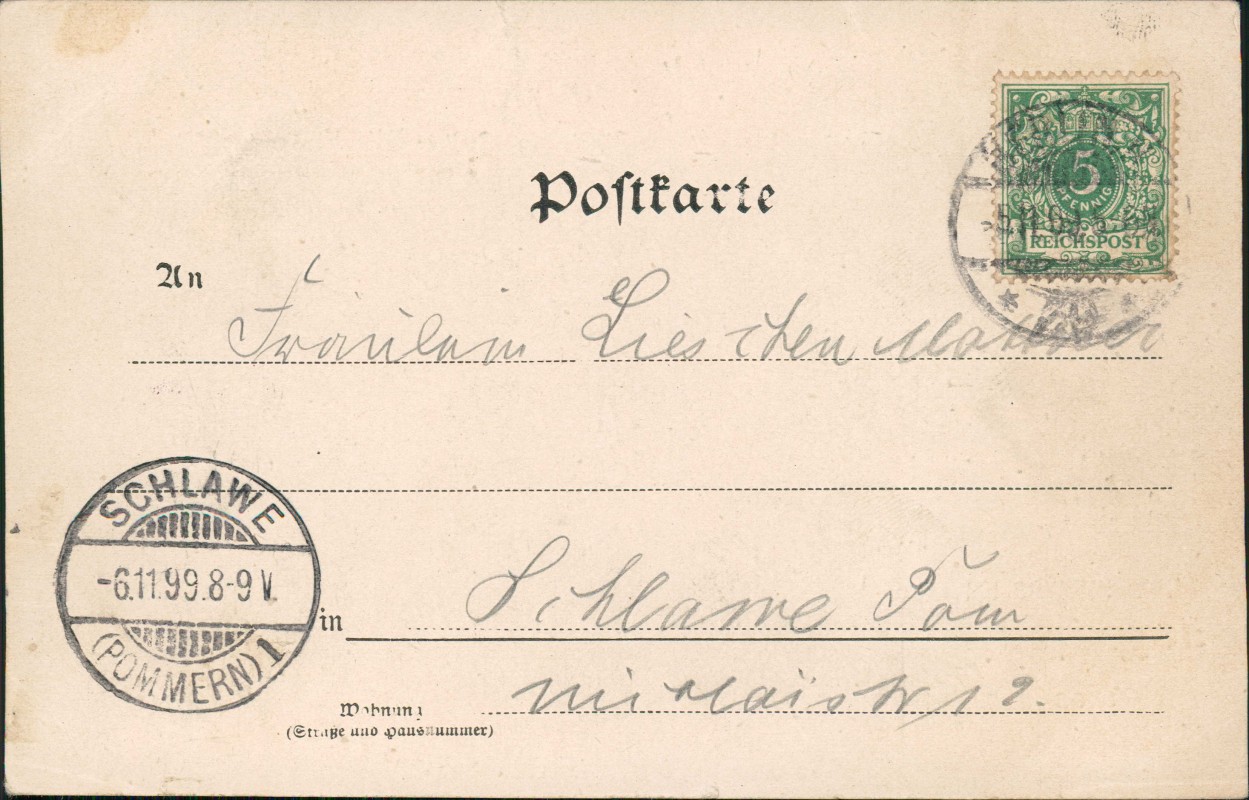 Postkarte
5
PFENNIG
REICHSPOST
An
Fräulein Lieschen
SCHLAWE
-6.11.99.8-9 V.
(POMMERN) 1
in Schlawe Pom
Wohnung
(Straße und Hausnummer)
Nicolaistr 12.